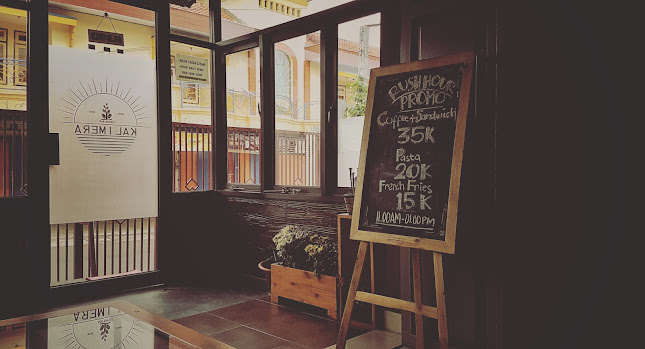 KALIMERA
RUSH HOUR
PROMO
Coffee + Sandwich
35K
Pasta
20K
French Fries
15K
11.00AM-01.00PM